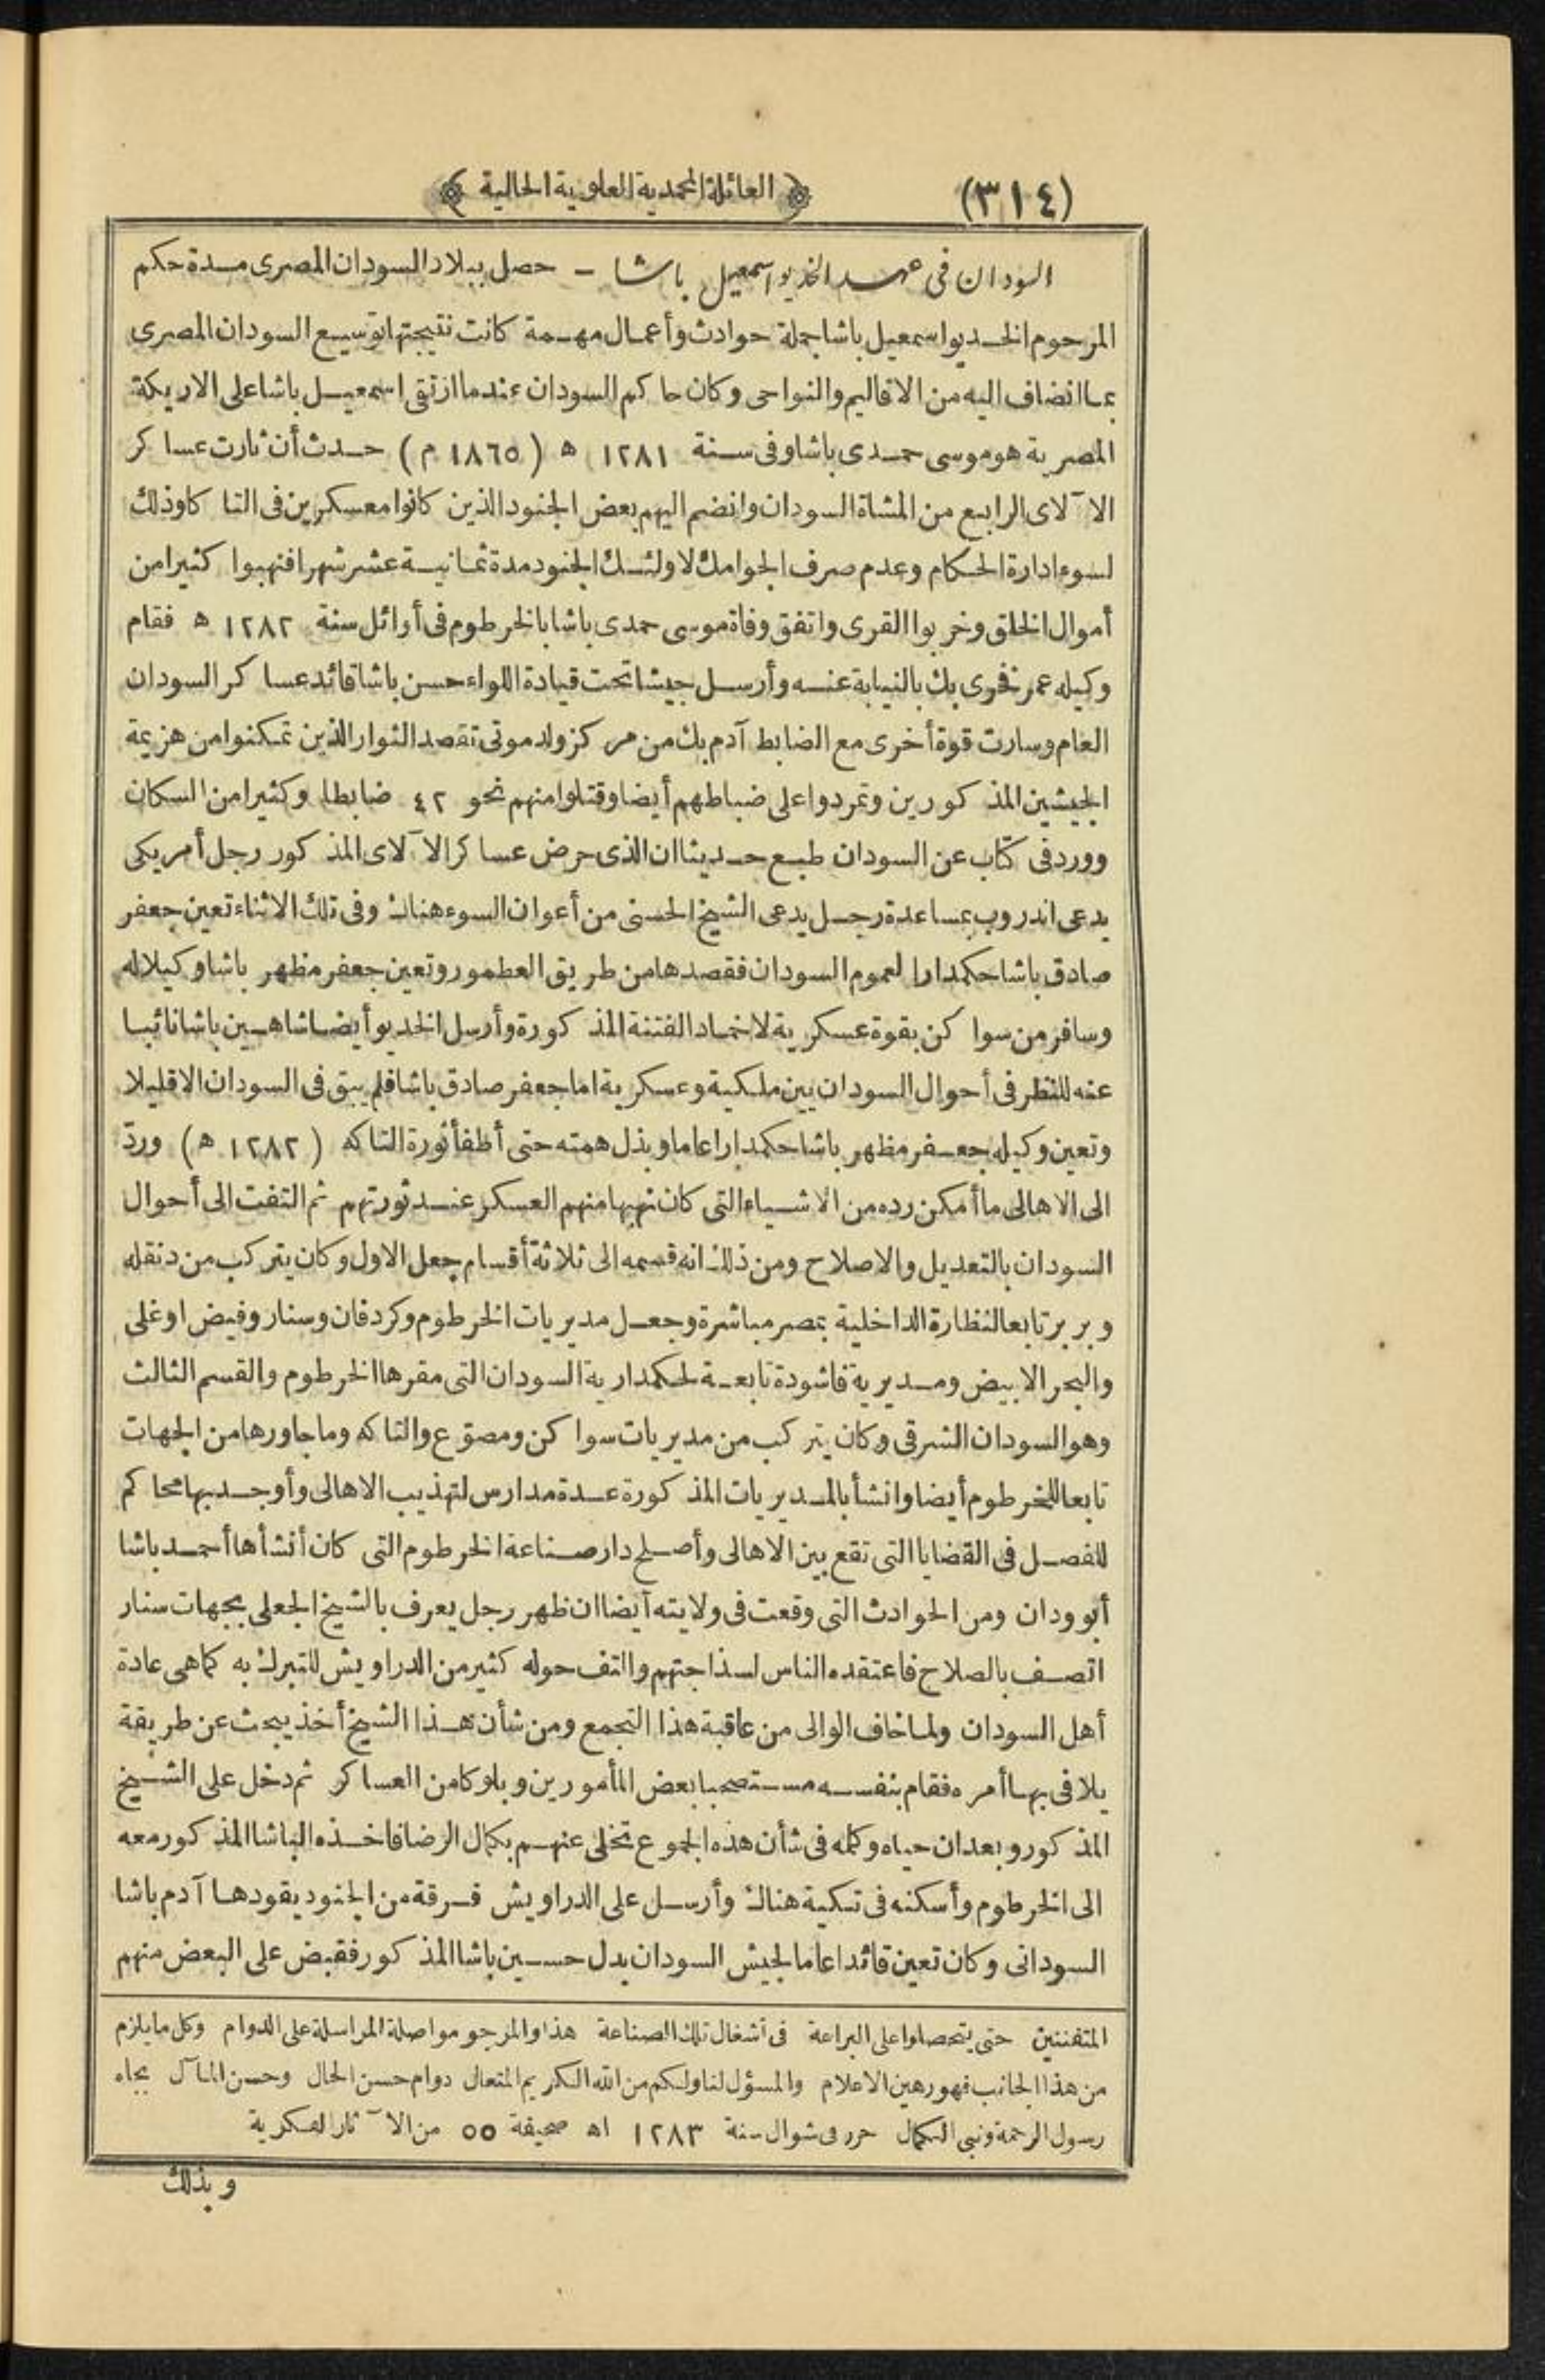 (٣١٤)
﴿ العائلة المحمدية العلوية الحالية ﴾
السودان فى عهد الخديو اسمعيل باشا – حصل ببلاد السودان المصرى مدة حكم
المرحوم الخديو اسمعيل باشا جملة حوادث وأعمال مهمة كانت نتيجتها توسيع السودان المصرى
بما انضاف اليه من الاقاليم والنواحى وكان حاكم السودان عندما ارتقى اسمعيل باشا على الاريكة
المصرية هو موسى حمدى باشا وفى سنة ١٢٨١ ه (١٨٦٥ م) حدث أن ثارت عساكر
الا آلاى الرابع من المشاة السودان وانضم اليهم بعض الجنود الذين كانوا معسكرين فى التاكا وذلك
لسوء ادارة الحكام وعدم صرف الجوامك لاولئك الجنود مدة ثمانية عشر شهرا فنهبوا كثيرا من
أموال الخلق وخربوا القرى واتفق وفاة موسى حمدى باشا بالخرطوم فى أوائل سنة ١٢٨٢ ه فقام
وكيله عمر فخرى بك بالنيابة عنه وأرسل جيشا تحت قيادة اللواء حسن باشا قائد عساكر السودان
العام وسارت قوة أخرى مع الضابط آدم بك من مركز ولد موتى تقصد الثوار الذين تمكنوا من هزيمة
الجيشين المذكورين وتمردوا على ضباطهم أيضا وقتلوا منهم نحو ٤٢ ضابطا وكثيرا من السكان
وورد فى كتاب عن السودان طبع حديثا ان الذى حرض عساكر الا آلاى المذكور رجل أمريكى
يدعى اندروب بمساعدة رجل يدعى الشيخ الحسنى من أعوان السوء هناك وفى تلك الاثناء تعين جعفر
صادق باشا حكمدارا لعموم السودان فقصدها من طريق العطمور وتعين جعفر مظهر باشا وكيلا له
وسافر من سواكن بقوة عسكرية لاخماد الفتنة المذكورة وأرسل الخديو أيضا شاهين باشا نائبا
عنه للنظر فى أحوال السودان بين ملكية وعسكرية اما جعفر صادق باشا فلم يبق فى السودان الا قليلا
وتعين وكيله جعفر مظهر باشا حكمدارا عاما وبذل همته حتى أطفأ ثورة التاكه (١٢٨٢ ه) وردّ
الى الاهالى ما أمكن رده من الاشياء التى كان نهبها منهم العسكر عند ثورتهم ثم التفت الى أحوال
السودان بالتعديل والاصلاح ومن ذلك انه قسمه الى ثلاثة أقسام جعل الاول وكان يتركب من دنقله
وبربر تابعا لنظارة الداخلية بمصر مباشرة وجعل مديريات الخرطوم وكردفان وسنار وفيض اوغلى
والبحر الابيض ومديرية فاشودة تابعة لحكمدارية السودان التى مقرها الخرطوم والقسم الثالث
وهو السودان الشرقى وكان يتركب من مديريات سواكن ومصوّع والتاكه وما جاورها من الجهات
تابعا للخرطوم أيضا وانشأ بالمديريات المذكورة عدة مدارس لتهذيب الاهالى وأوجد بها محاكم
للفصل فى القضايا التى تقع بين الاهالى وأصلح دار صناعة الخرطوم التى كان أنشأها أحمد باشا
أبو ودان ومن الحوادث التى وقعت فى ولايته أيضا ان ظهر رجل يعرف بالشيخ الجعلى بجهات سنار
اتصف بالصلاح فاعتقده الناس لسذاجتهم والتف حوله كثير من الدراويش للتبرك به كما هى عادة
أهل السودان ولما خاف الوالى من عاقبة هذا التجمع ومن شأن هذا الشيخ أخذ يبحث عن طريقة
يلافى بها أمره فقام بنفسه مستصحبا بعض المأمورين وبلوكا من العساكر ثم دخل على الشيخ
المذكور وبعد ان حياه وكله فى شأن هذه الجموع تخلى عنهم بكمال الرضا فاخذه الباشا المذكور معه
الى الخرطوم وأسكنه فى تكية هناك وأرسل على الدراويش فرقة من الجنود يقودها آدم باشا
السودانى وكان تعين قائدا عاما لجيش السودان بدل حسين باشا المذكور فقبض على البعض منهم
المتفننين حتى يتحصلوا على البراعة فى أشغال تلك الصناعة هذا والمرجو مواصلة المراسلة على الدوام وكل ما يلزم
من هذا الجانب فهو رهين الاعلام والمسؤل لنا ولكم من الله الكريم المتعال دوام حسن الحال وحسن المآل بجاه
رسول الرحمة ونبى الكمال حرر فى شوال سنة ١٢٨٣ اه صحيفة ٥٥ من الا آثار الفكرية
وبذلك